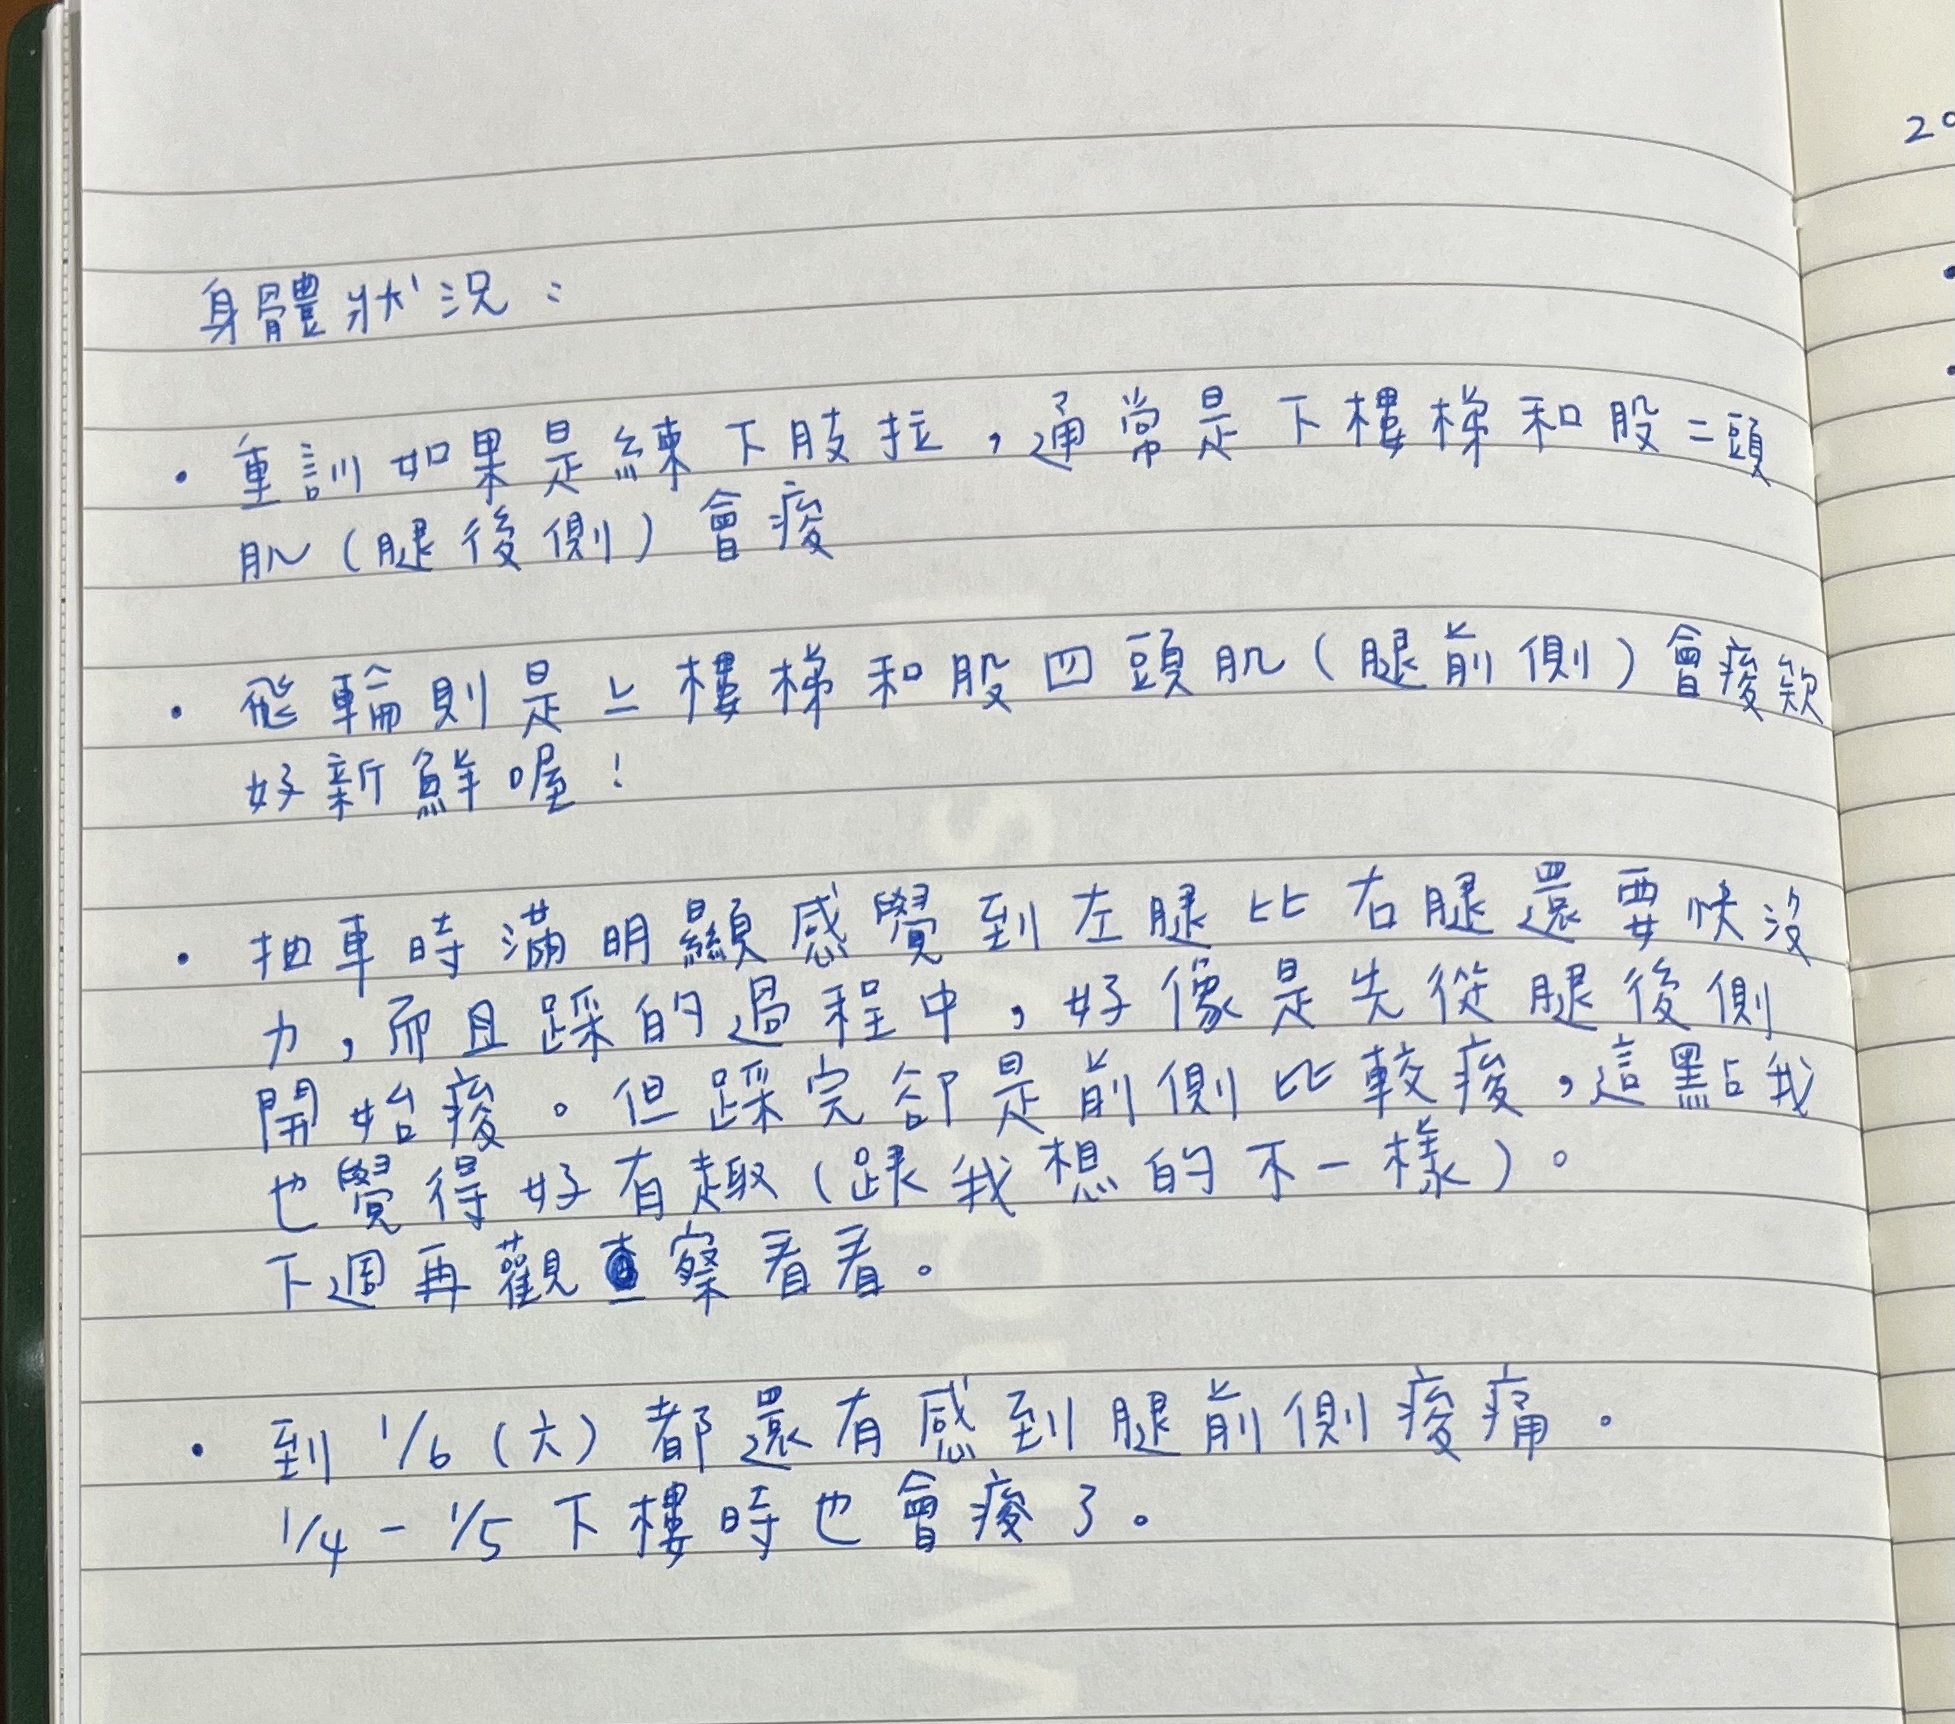 身體狀況：
・重訓如果是練下肢拉，通常是下樓梯和股二頭
肌（腿後側）會痠
・飛輪則是上樓梯和股四頭肌（腿前側）會痠欸
好新鮮喔！
・抽車時滿明顯感覺到左腿比右腿還要快沒
力，而且踩的過程中，好像是先從腿後側
開始痠。但踩完卻是前側比較痠，這點我
也覺得好有趣（跟我想的不一樣）。
下週再觀察看看。
・到 1/6（六）都還有感到腿前側痠痛。
1/4 - 1/5 下樓時也會痠了。
20